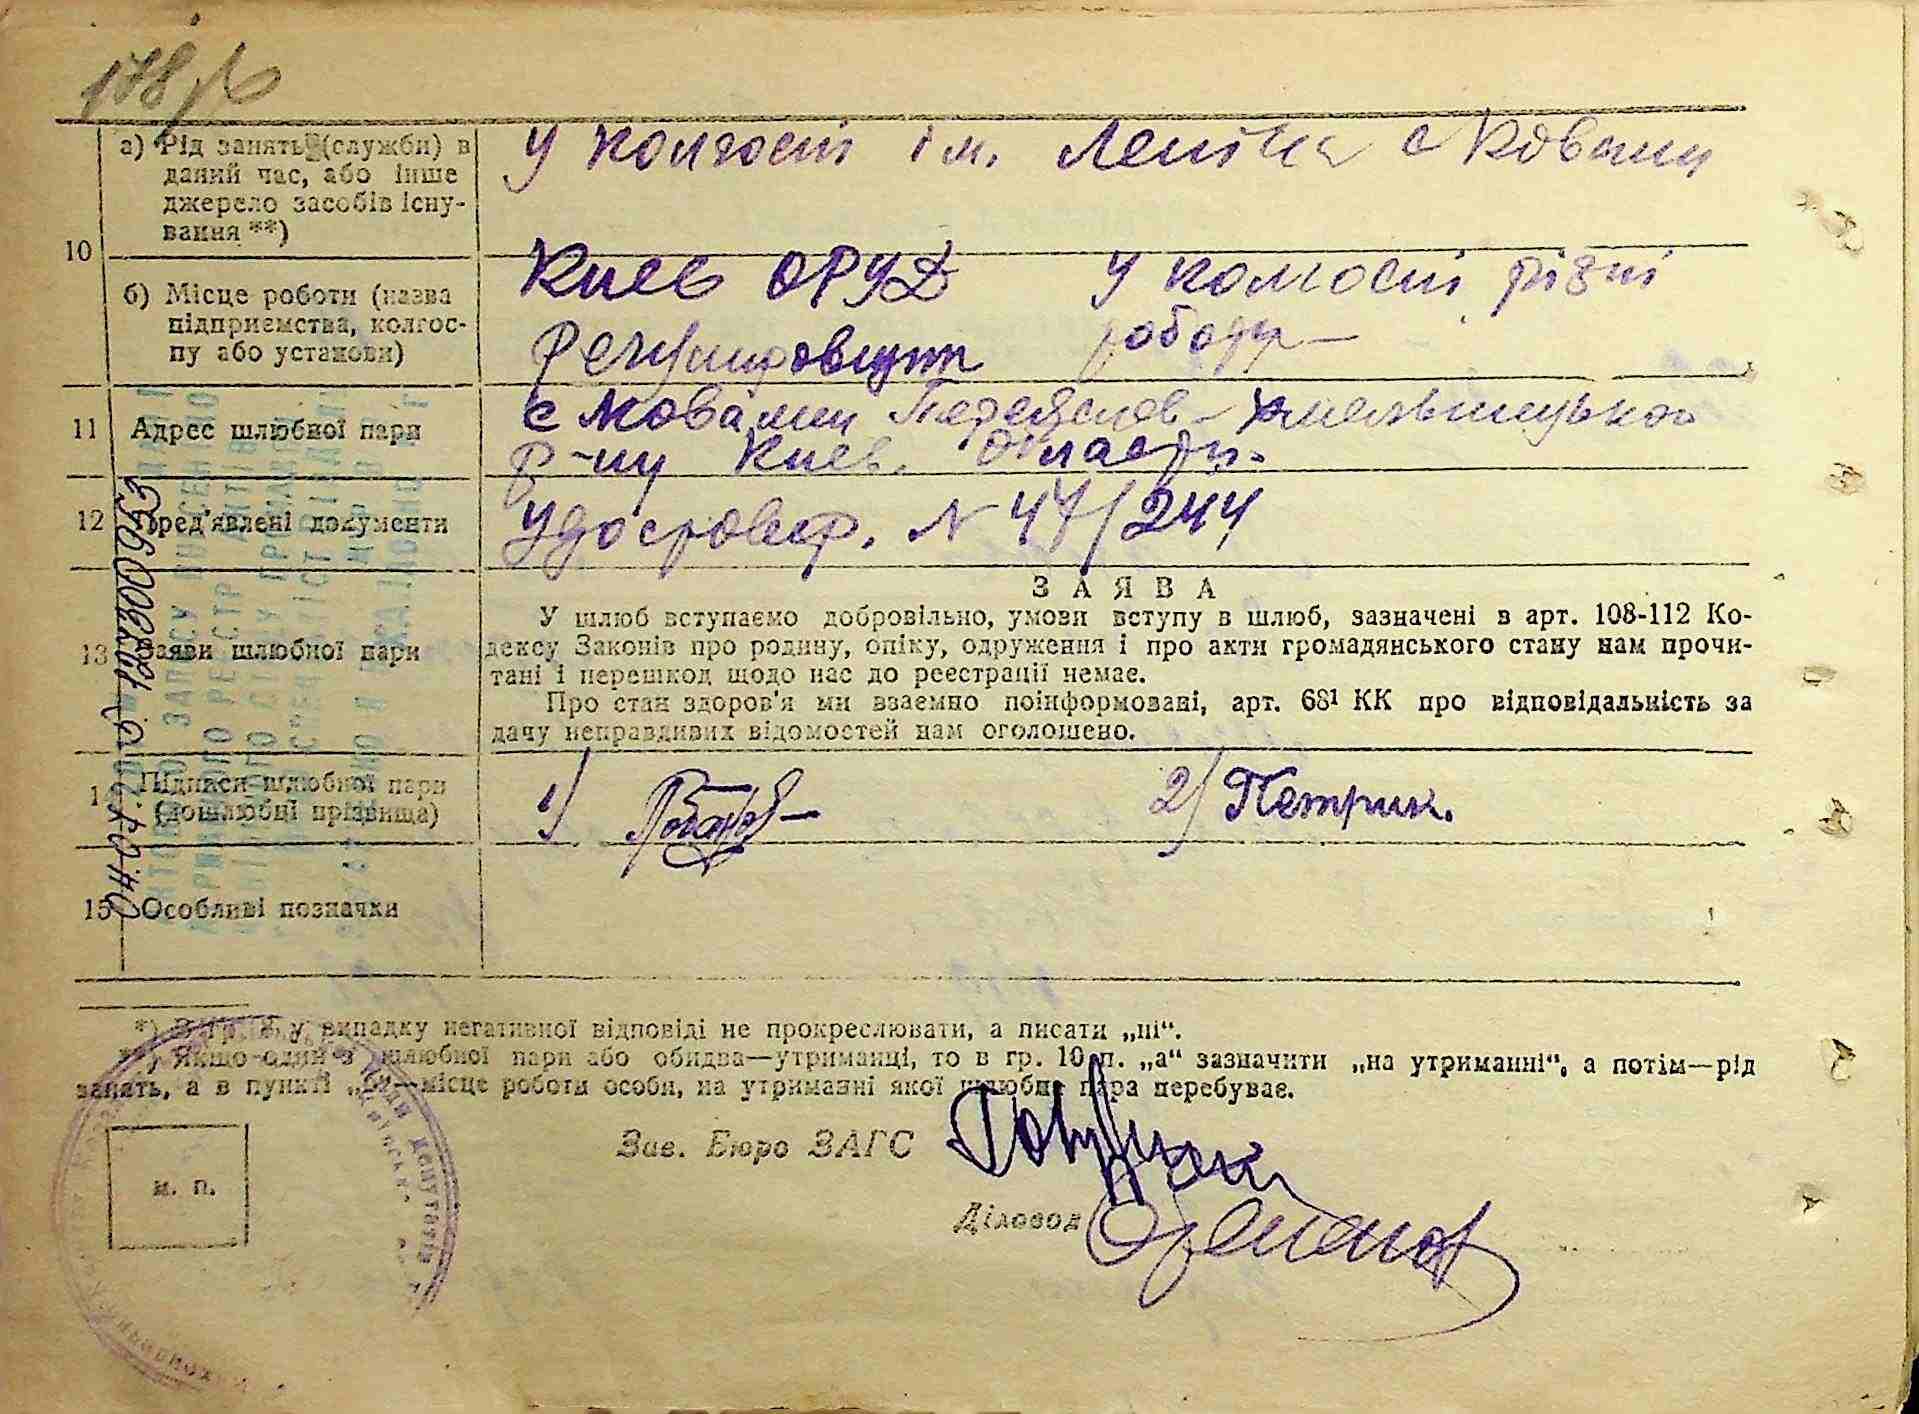 178
10
а) Рід занять (служби) в
даний час, або інше
джерело засобів існу-
вання **)
У колгоспі ім. Леніна с Ковалин
б) Місце роботи (назва
підприємства, колгос-
пу або установи)
Киев ОРУД У колгоспі різні
роботу
11 Адрес шлюбної пари
с Ковалин Переяслов-Хмельницького
р-ну Киев. області.
12 Пред'явлені документи
Удостовер. N 47/244
13 Заяви шлюбної пари
ЗАЯВА
У шлюб вступаємо добровільно, умови вступу в шлюб, зазначені в арт. 108-112 Ко-
дексу Законів про родину, опіку, одруження і про акти громадянського стану нам прочи-
тані і перешкод щодо нас до реєстрації немає.
Про стан здоров'я ми взаємно поінформовані, арт. 68¹ КК про відповідальність за
дачу неправдивих відомостей нам оголошено.
Підписи шлюбної пари
(дошлюбні прізвища)
1) 2) Петрик.
15 Особливі позначки
*) В гр. у випадку негативної відповіді не прокреслювати, а писати „ні“.
**) Якщо один з шлюбної пари або обидва—утриманці, то в гр. 10 п. „а“ зазначити „на утриманні“, а потім—рід
занять, а в пункті „б“—місце роботи особи, на утриманні якої шлюбна пара перебуває.
м. п.
Зав. Бюро ЗАГС
Діловод